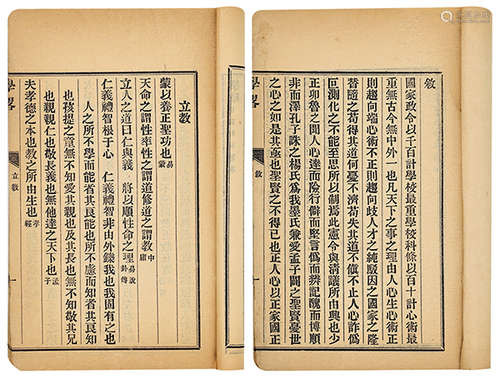 敘
國家政令以千百計學校最重學校科條以百十計心術最
重無古今無中外一也凡天下之事之理由人心生心術正
則趨向端心術不正則趨向歧人才之純駁因之國家之隆
替隨之苟得其道何憂不濟苟失其道不愼不止人心詐僞
叵測化之不能至思所以制焉此憲令與清議所由興也少
正卯魯之聞人心達而險行僻而堅言僞而辨記醜而博順
非而澤孔子誅之楊氏爲我墨氏兼愛孟子闢之聖賢憂世
之心之如是其亟也聖賢之不得已也正人心以正家國正
學畧
敘
立敎
蒙以養正聖功也易蒙
天命之謂性率性之謂道修道之謂敎中庸
立人之道曰仁與義 將以順性命之理易說卦傳
仁義禮智根于心 仁義禮智非由外鑠我也我固有之也
人之所不學而能者其良能也所不慮而知者其良知
也孩提之童無不知愛其親也及其長也無不知敬其兄
也親親仁也敬長義也無他達之天下也孟子
夫孝德之本也敎之所由生也孝經
學畧
立敎
一